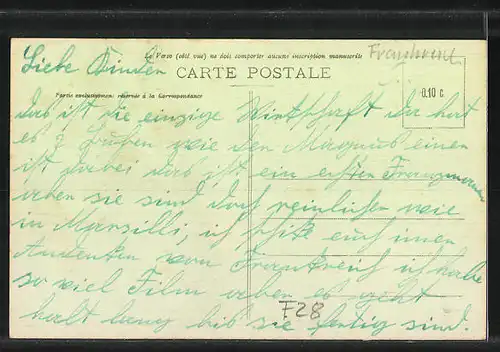 Le Verso (côté vue) ne doit comporter aucune inscription manuscrite
CARTE POSTALE
Partie exclusivement réservée à la Correspondance
0.10 c.
Liebe Kinder
das ist die einzige Wirtschaft da hat
es 3 wie den Magnus einen
ist dabei das ist ein Franzmann
aber sie sind doch reinlicher wie
in Marsilli, ich euch einen
Andenken von Frankreich ich habe
so viel Film aber es geht
halt lang bis sie fertig sind.
F28